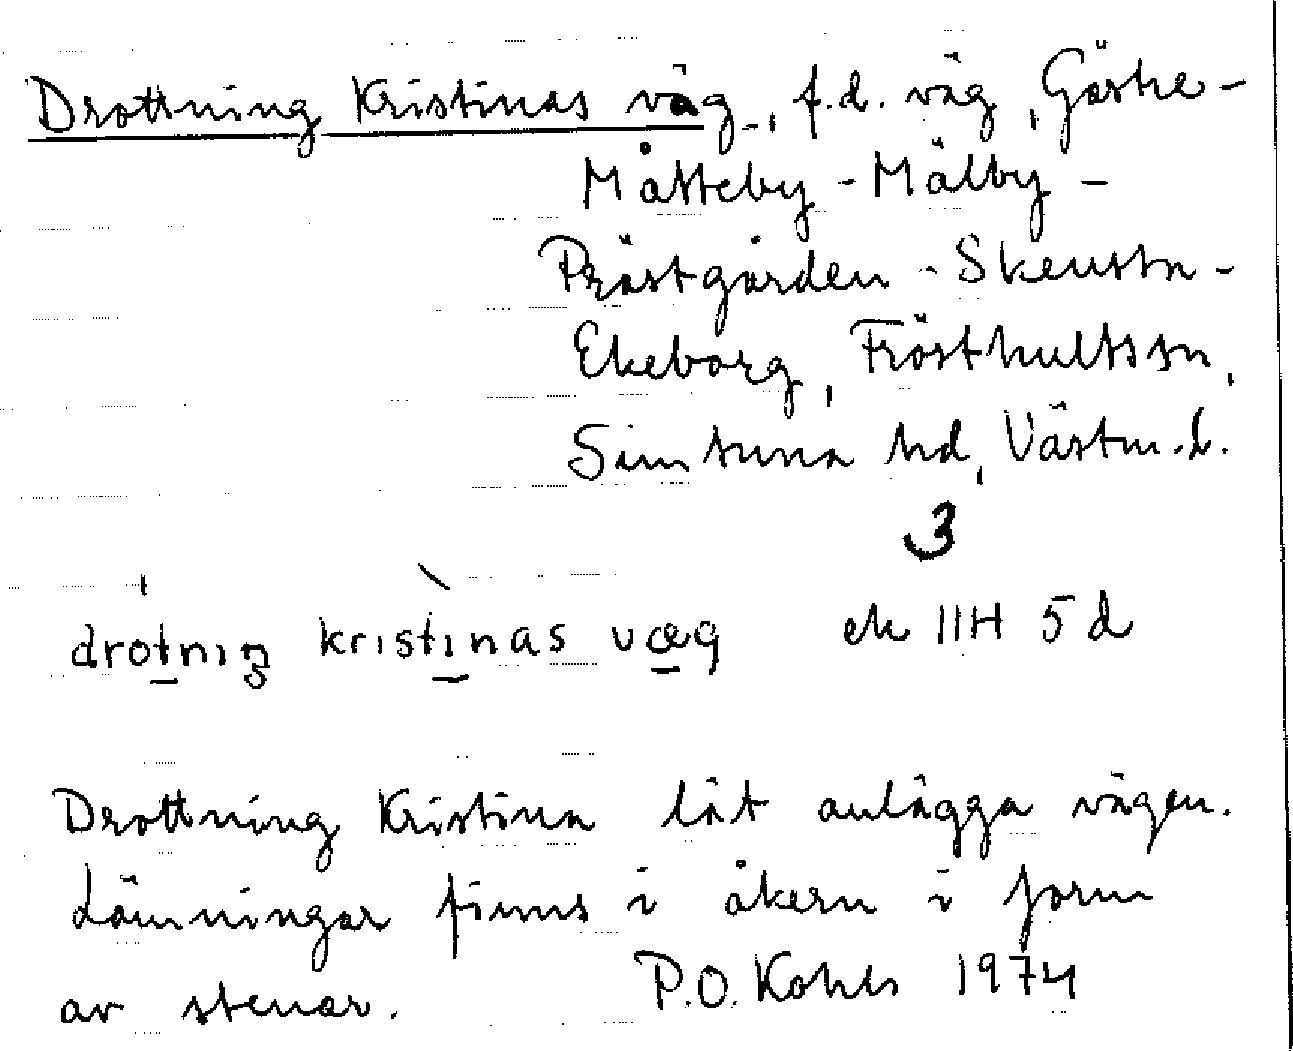 Drottning Kristinas väg, f.d. väg, Göske-
Måtteby - Mälby -
Prästgården - Skensta -
Ekeborg, Frösthults sn,
Simtuna hd, Västm. l.
3
drotniŋ kristinas væg ek 11H 5 d
Drottning Kristina lät anlägga vägen.
Lämningar finns i åkern i form
av stenar. P.O. 1974